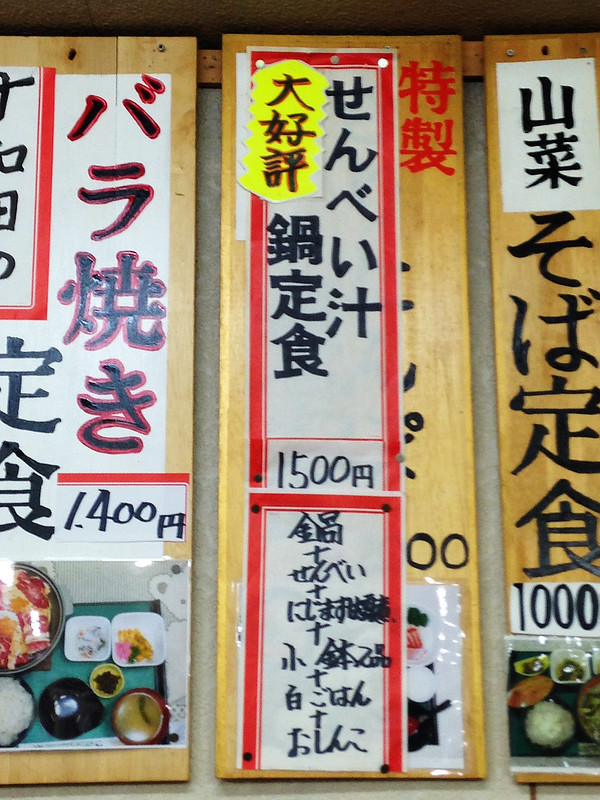 十和田の
バラ焼き
定食
1.400円
特製
大好評
せんべい汁
鍋定食
1500円
鍋
+
せんべい
+
にじます
+
小鉢2品
+
白ごはん
+
おしんこ
00
山菜
そば定食
1000